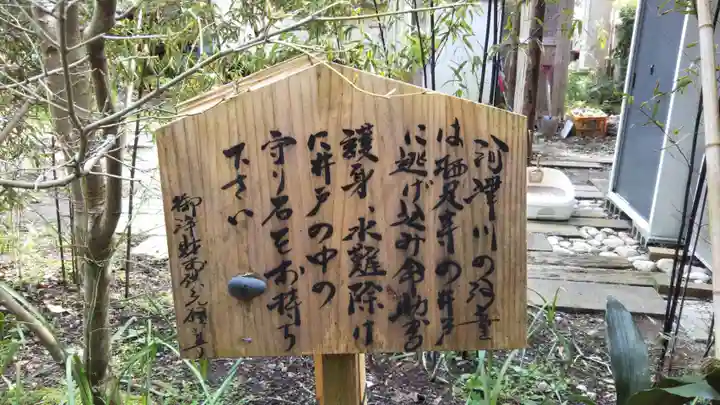 河津川の河童
は栖足寺の井戸
に逃げ込み命助る
護身、水難除け
に井戸の中の
守り石をお持ち
下さい
御浄財